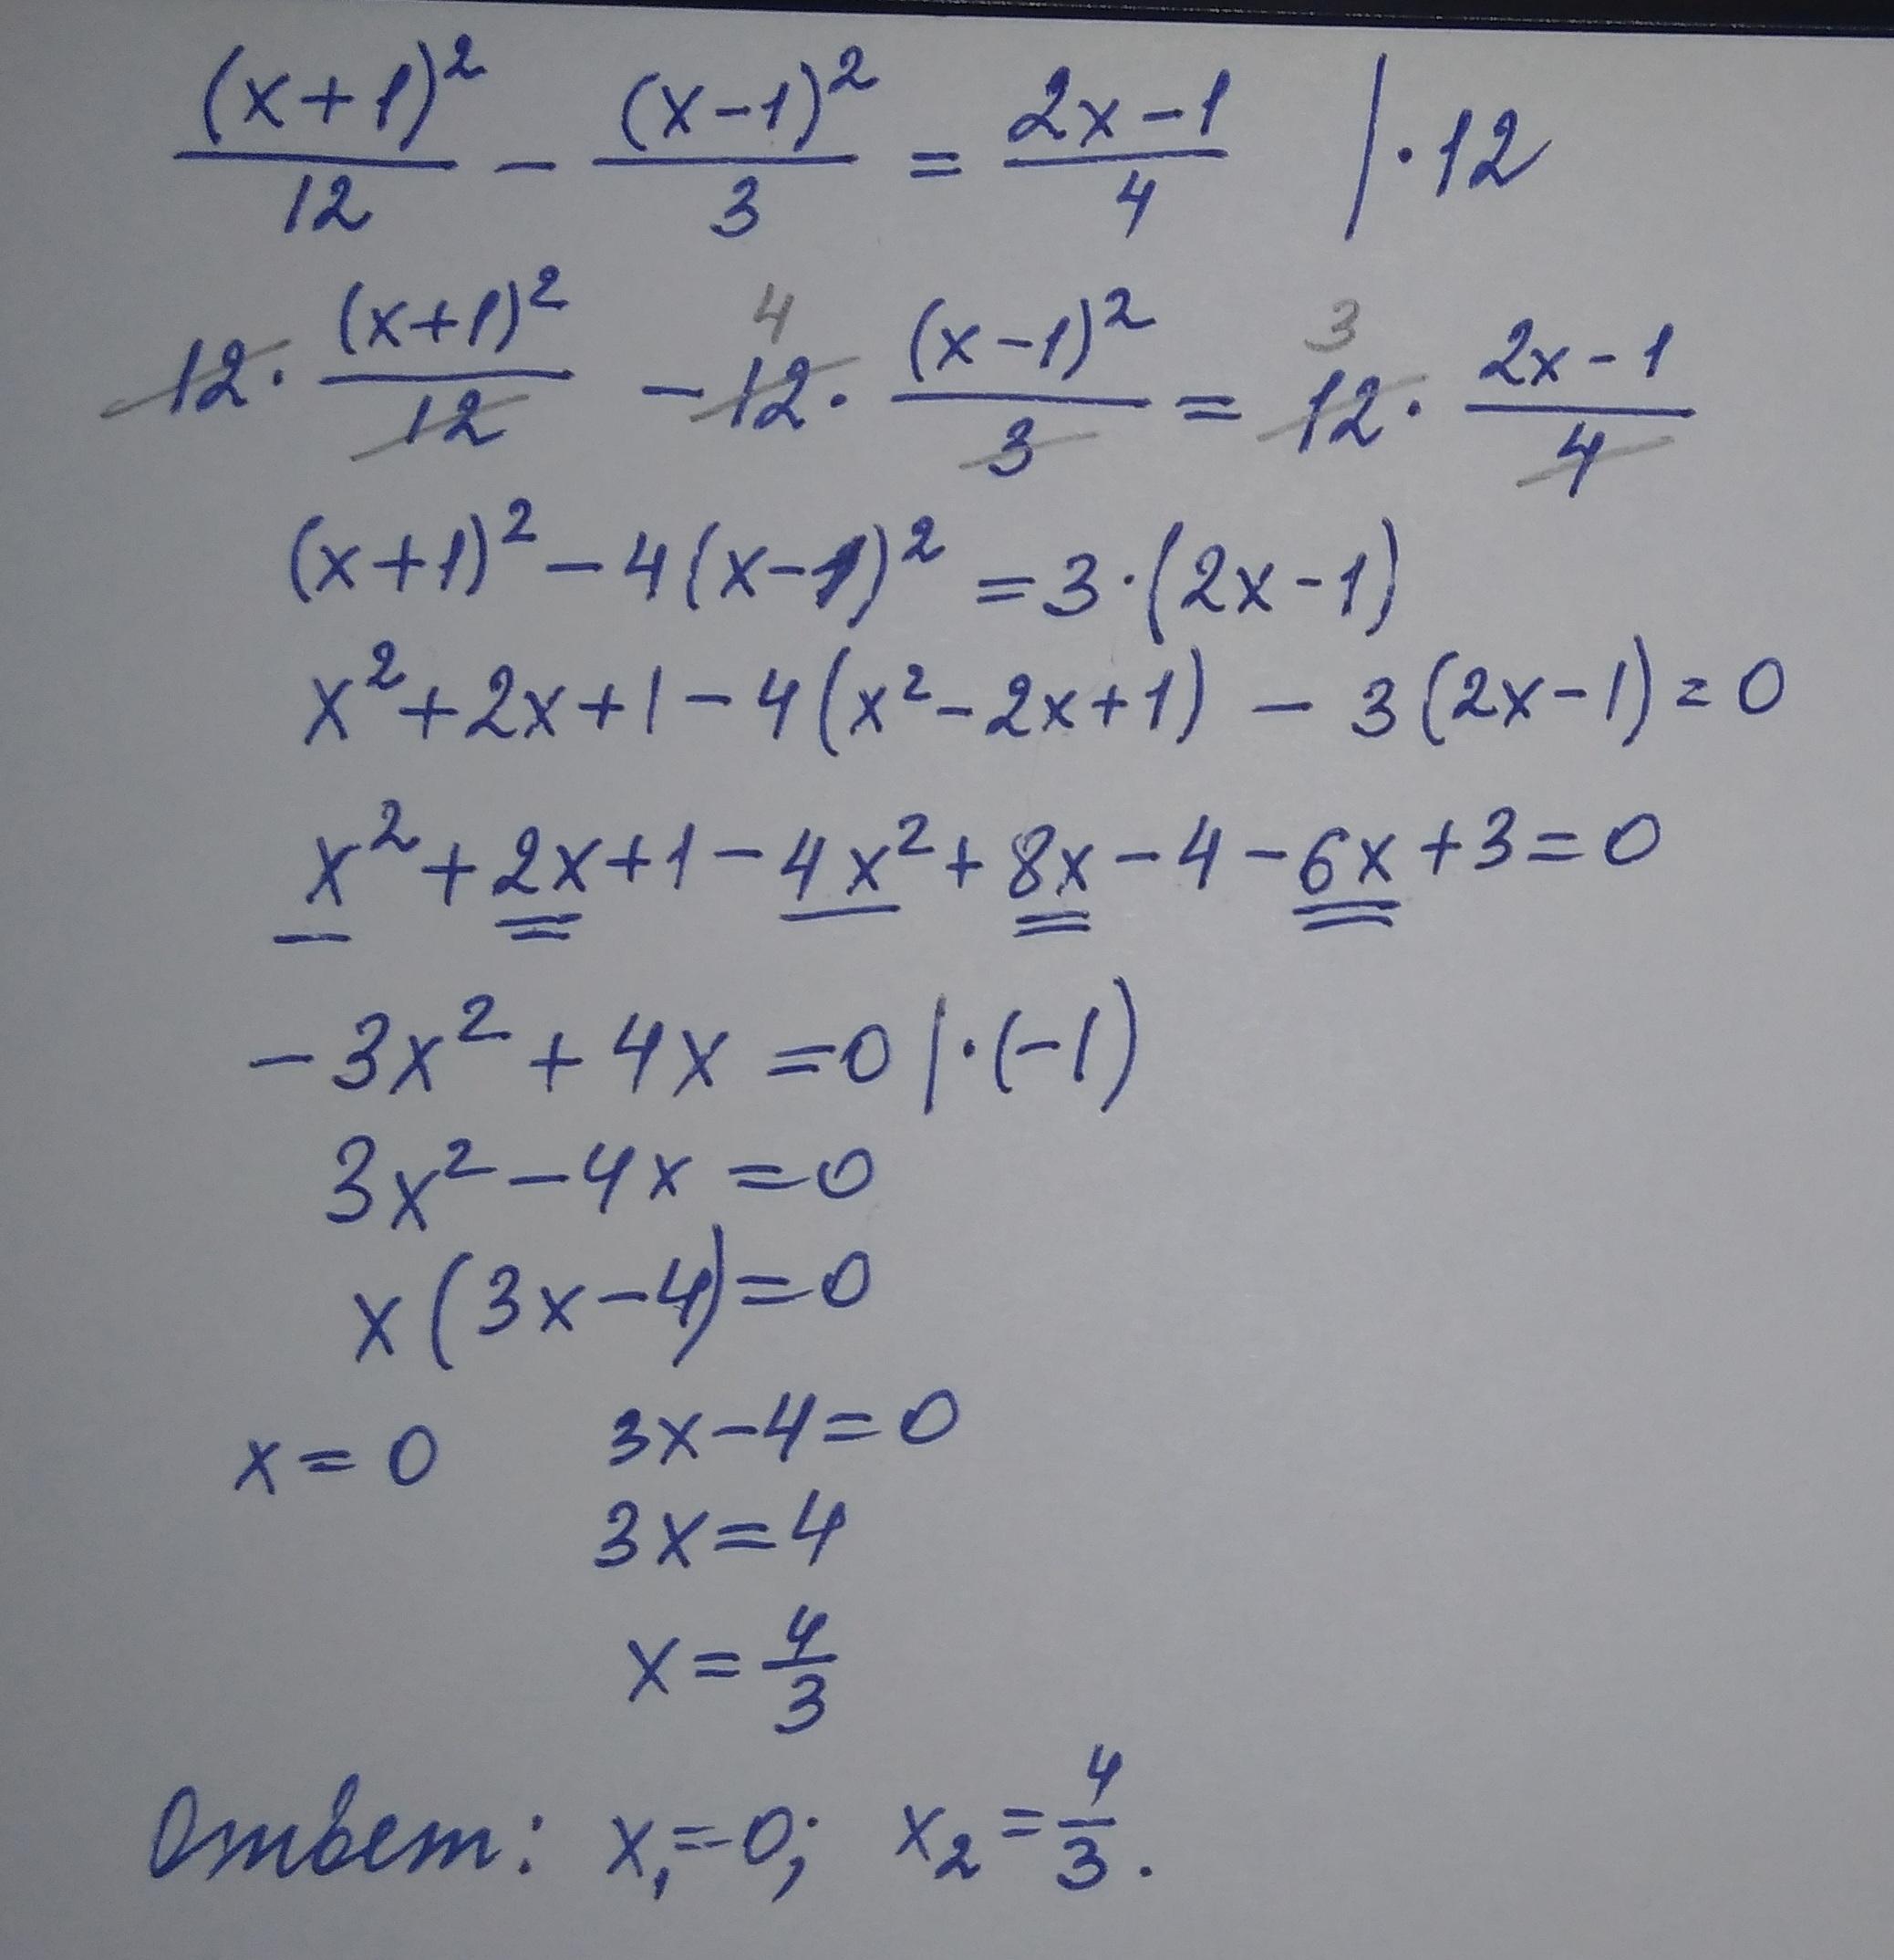 (x+1)²/12 − (x−1)²/3 = (2x−1)/4 | ·12
12 · (x+1)²/12 − 12 · (x−1)²/3 = 12 · (2x−1)/4
4 3
(x+1)² − 4(x−1)² = 3·(2x−1)
x² + 2x + 1 − 4(x² − 2x + 1) − 3(2x−1) = 0
x² + 2x + 1 − 4x² + 8x − 4 − 6x + 3 = 0
−3x² + 4x = 0 | ·(−1)
3x² − 4x = 0
x(3x−4) = 0
x = 0 3x−4 = 0
3x = 4
x = 4/3
Ответ: x₁ = 0; x₂ = 4/3.